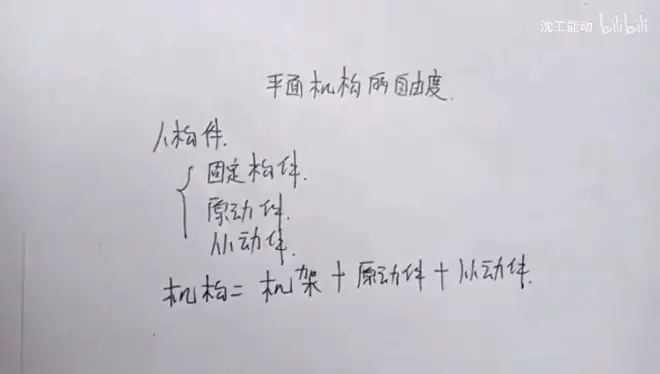 沈工能动 bilibili
平面机构的自由度.
1、构件.
固定构件.
原动件.
从动件.
机构=机架+原动件+从动件.